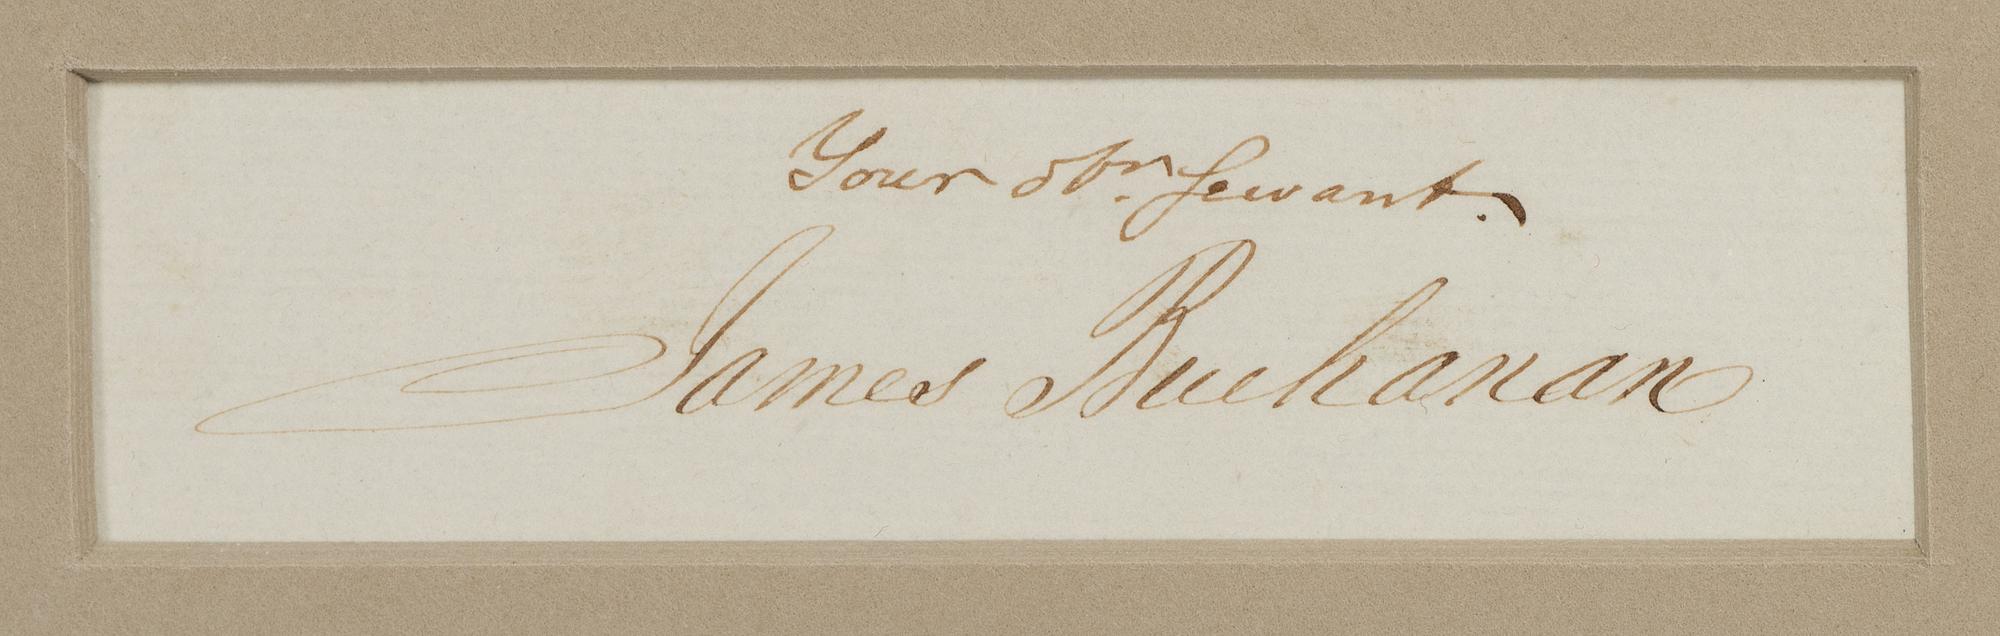 Your obt. Servant.
James Buchanan